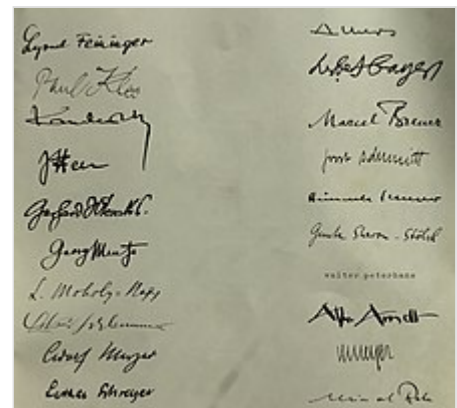 Lyonel Feininger
Paul Klee
Kandinsky
Gerhard Marcks
Georg Muche
L. Moholy-Nagy
Oskar Schlemmer
Adolf Meyer
Lothar Schreyer
Albers
Herbert Bayer
Marcel Breuer
joost schmidt
Hinnerk Scheper
Gunta Sharon-Stölzl
walter peterhans
Alfr Arndt